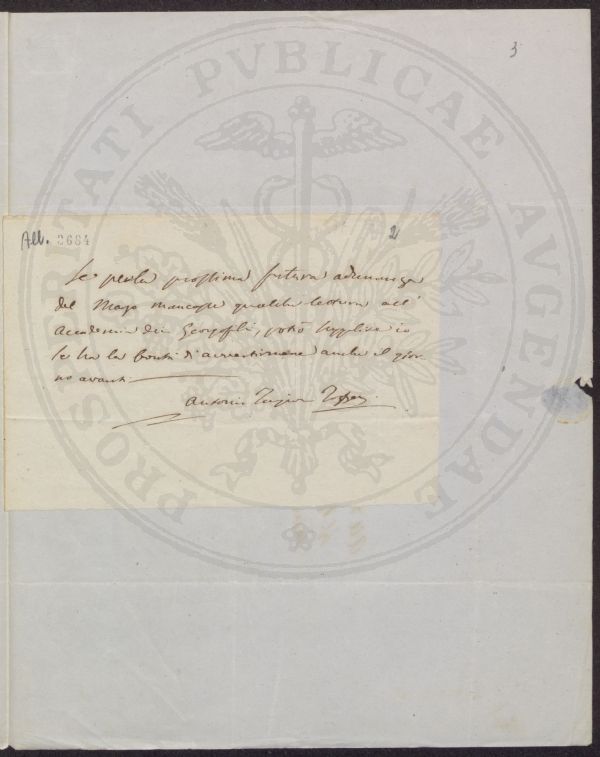 3
PROSPERITATI PVBLICAE AVGENDAE
All. 3684
2
Se per la prossima futura adunanza
del Mago mancasse qualche lettura all'
Accademia dei Georgofili, potrò supplire io
se ha la bontà d'avvertirmene anche il gior-
no avanti.
Antonio